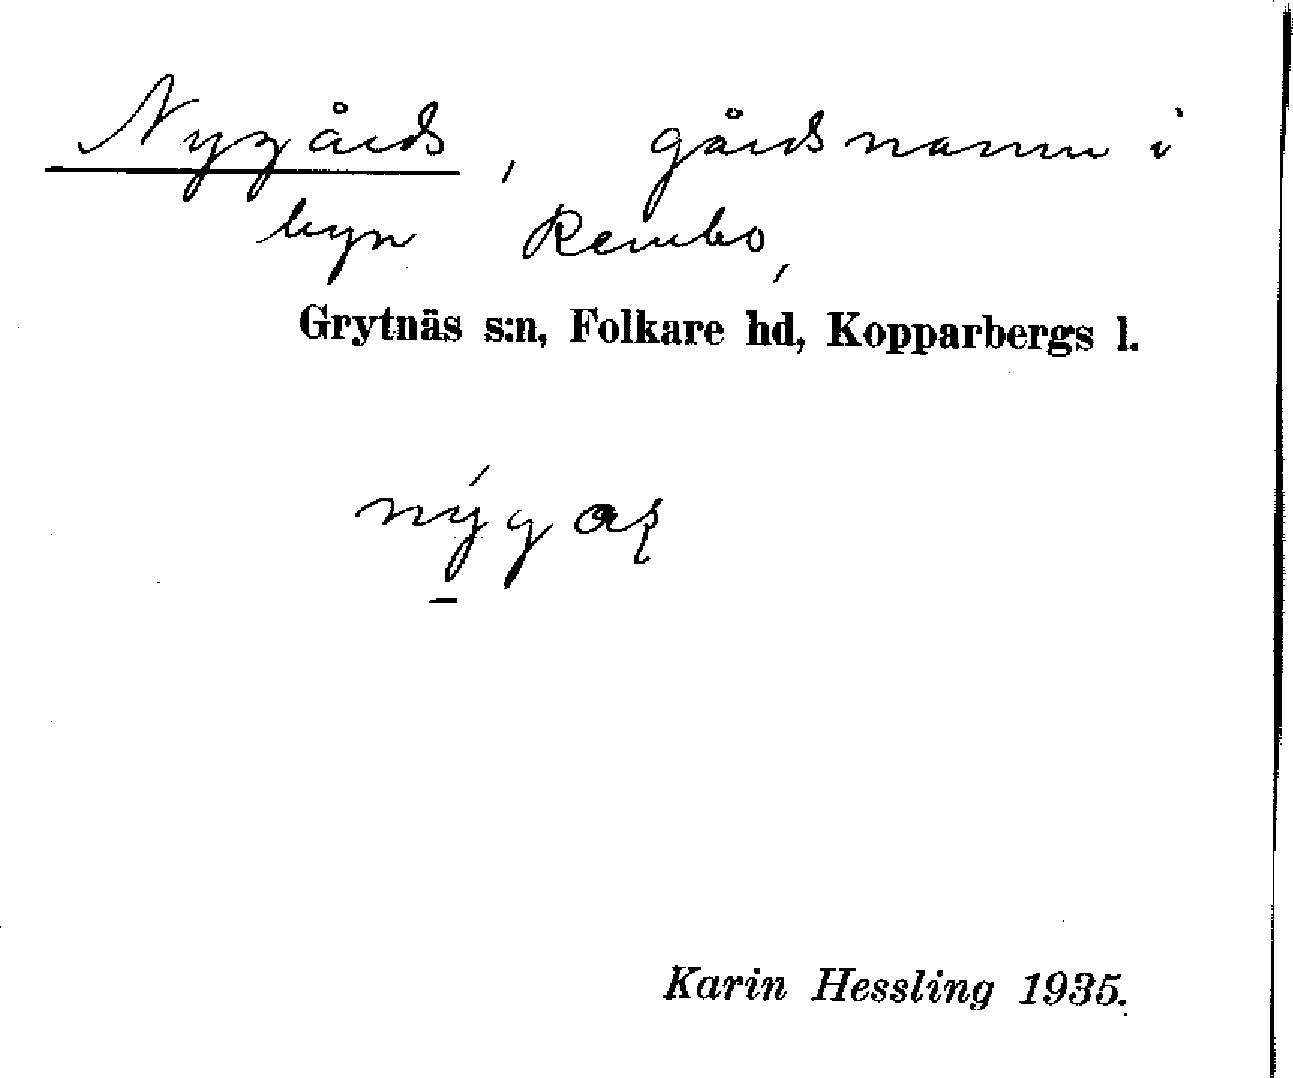 Nygårds, gårdsnamn i
byn Rembo,
Grytnäs s:n, Folkare hd, Kopparbergs l.
Karin Hessling 1935.